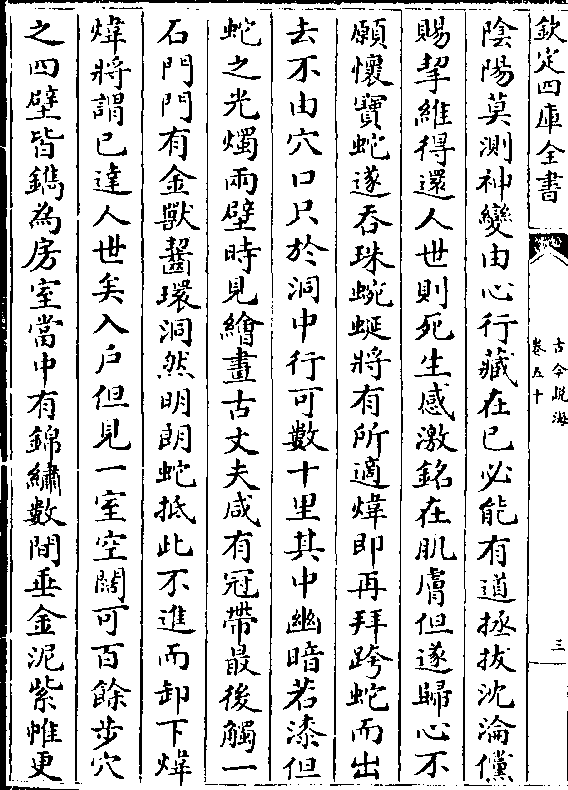 欽定四庫全書
古今説海
卷五十
三
陰陽莫測神變由心行藏在已必能有道拯拔沈淪儻
賜挈維得還人世則死生感激銘在肌膚但遂歸心不
願懷寶蛇遂吞珠蜿蜒將有所適煒即再拜跨蛇而出
去不由穴口只於洞中行可數十里其中幽暗若漆但
蛇之光燭兩壁時見繪畫古丈夫咸有冠帶最後觸一
石門門有金獸齧環洞然明朗蛇抵此不進而卸下煒
煒將謂已達人世矣入户但見一室空闊可百餘步穴
之四壁皆鐫為房室當中有錦繡數間垂金泥紫帷更